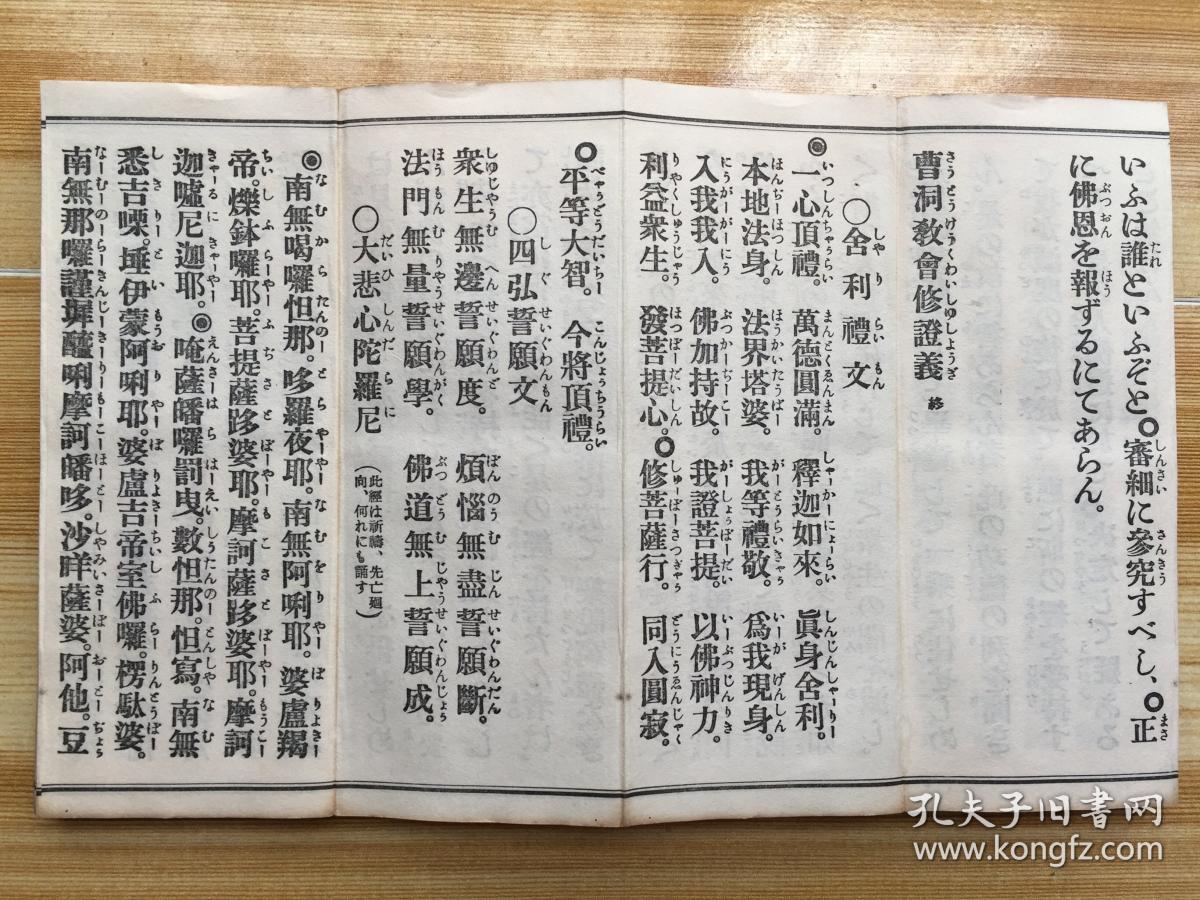 いふは誰といふぞと。審細に參究すべし、正
に佛恩を報ずるにてあらん。
曹洞敎會修證義 終
〇舍利禮文
一心頂禮。萬德圓滿。釋迦如來。眞身舍利。
本地法身。法界塔婆。我等禮敬。爲我現身。
入我我入。佛加持故。我證菩提。以佛神力。
利益衆生。發菩提心。修菩薩行。同入圓寂。
平等大智。今將頂禮。
〇四弘誓願文
衆生無邊誓願度。煩惱無盡誓願斷。
法門無量誓願學。佛道無上誓願成。
〇大悲心陀羅尼（此經は祈禱、先亡廻向、何れにも誦す）
南無喝囉怛那。哆羅夜耶。南無阿唎耶。婆盧羯
帝。爍鉢囉耶。菩提薩跢婆耶。摩訶薩跢婆耶。摩訶
迦嚧尼迦耶。唵薩皤囉罰曳。數怛那。怛寫。南無
悉吉㗚。埵伊蒙阿唎耶。婆盧吉帝室佛囉。楞駄婆。
南無那囉謹墀醯唎摩訶皤哆。沙咩薩婆。阿他。豆
孔夫子旧书网
www.kongfz.com